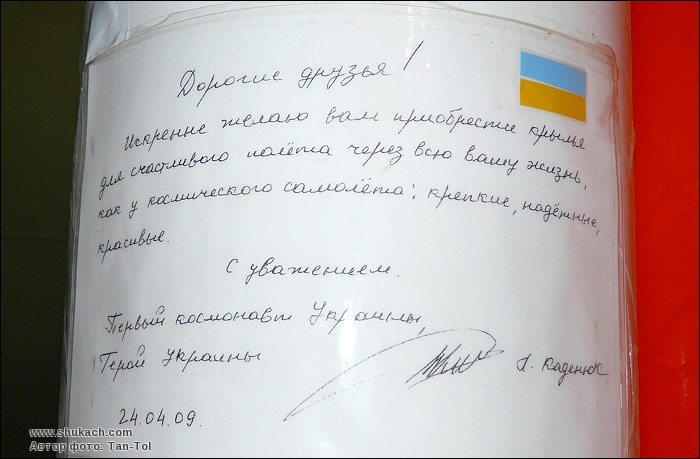 Дорогие друзья!
Искренне желаю вам приобрести крылья
для счастливого полёта через всю вашу жизнь,
как у космического самолёта: крепкие, надёжные,
красивые.
С уважением.
Первый космонавт Украины,
Герой Украины
Л. Каденюк
24.04.09.
www.shukach.com
Автор фото: Tan-Tol